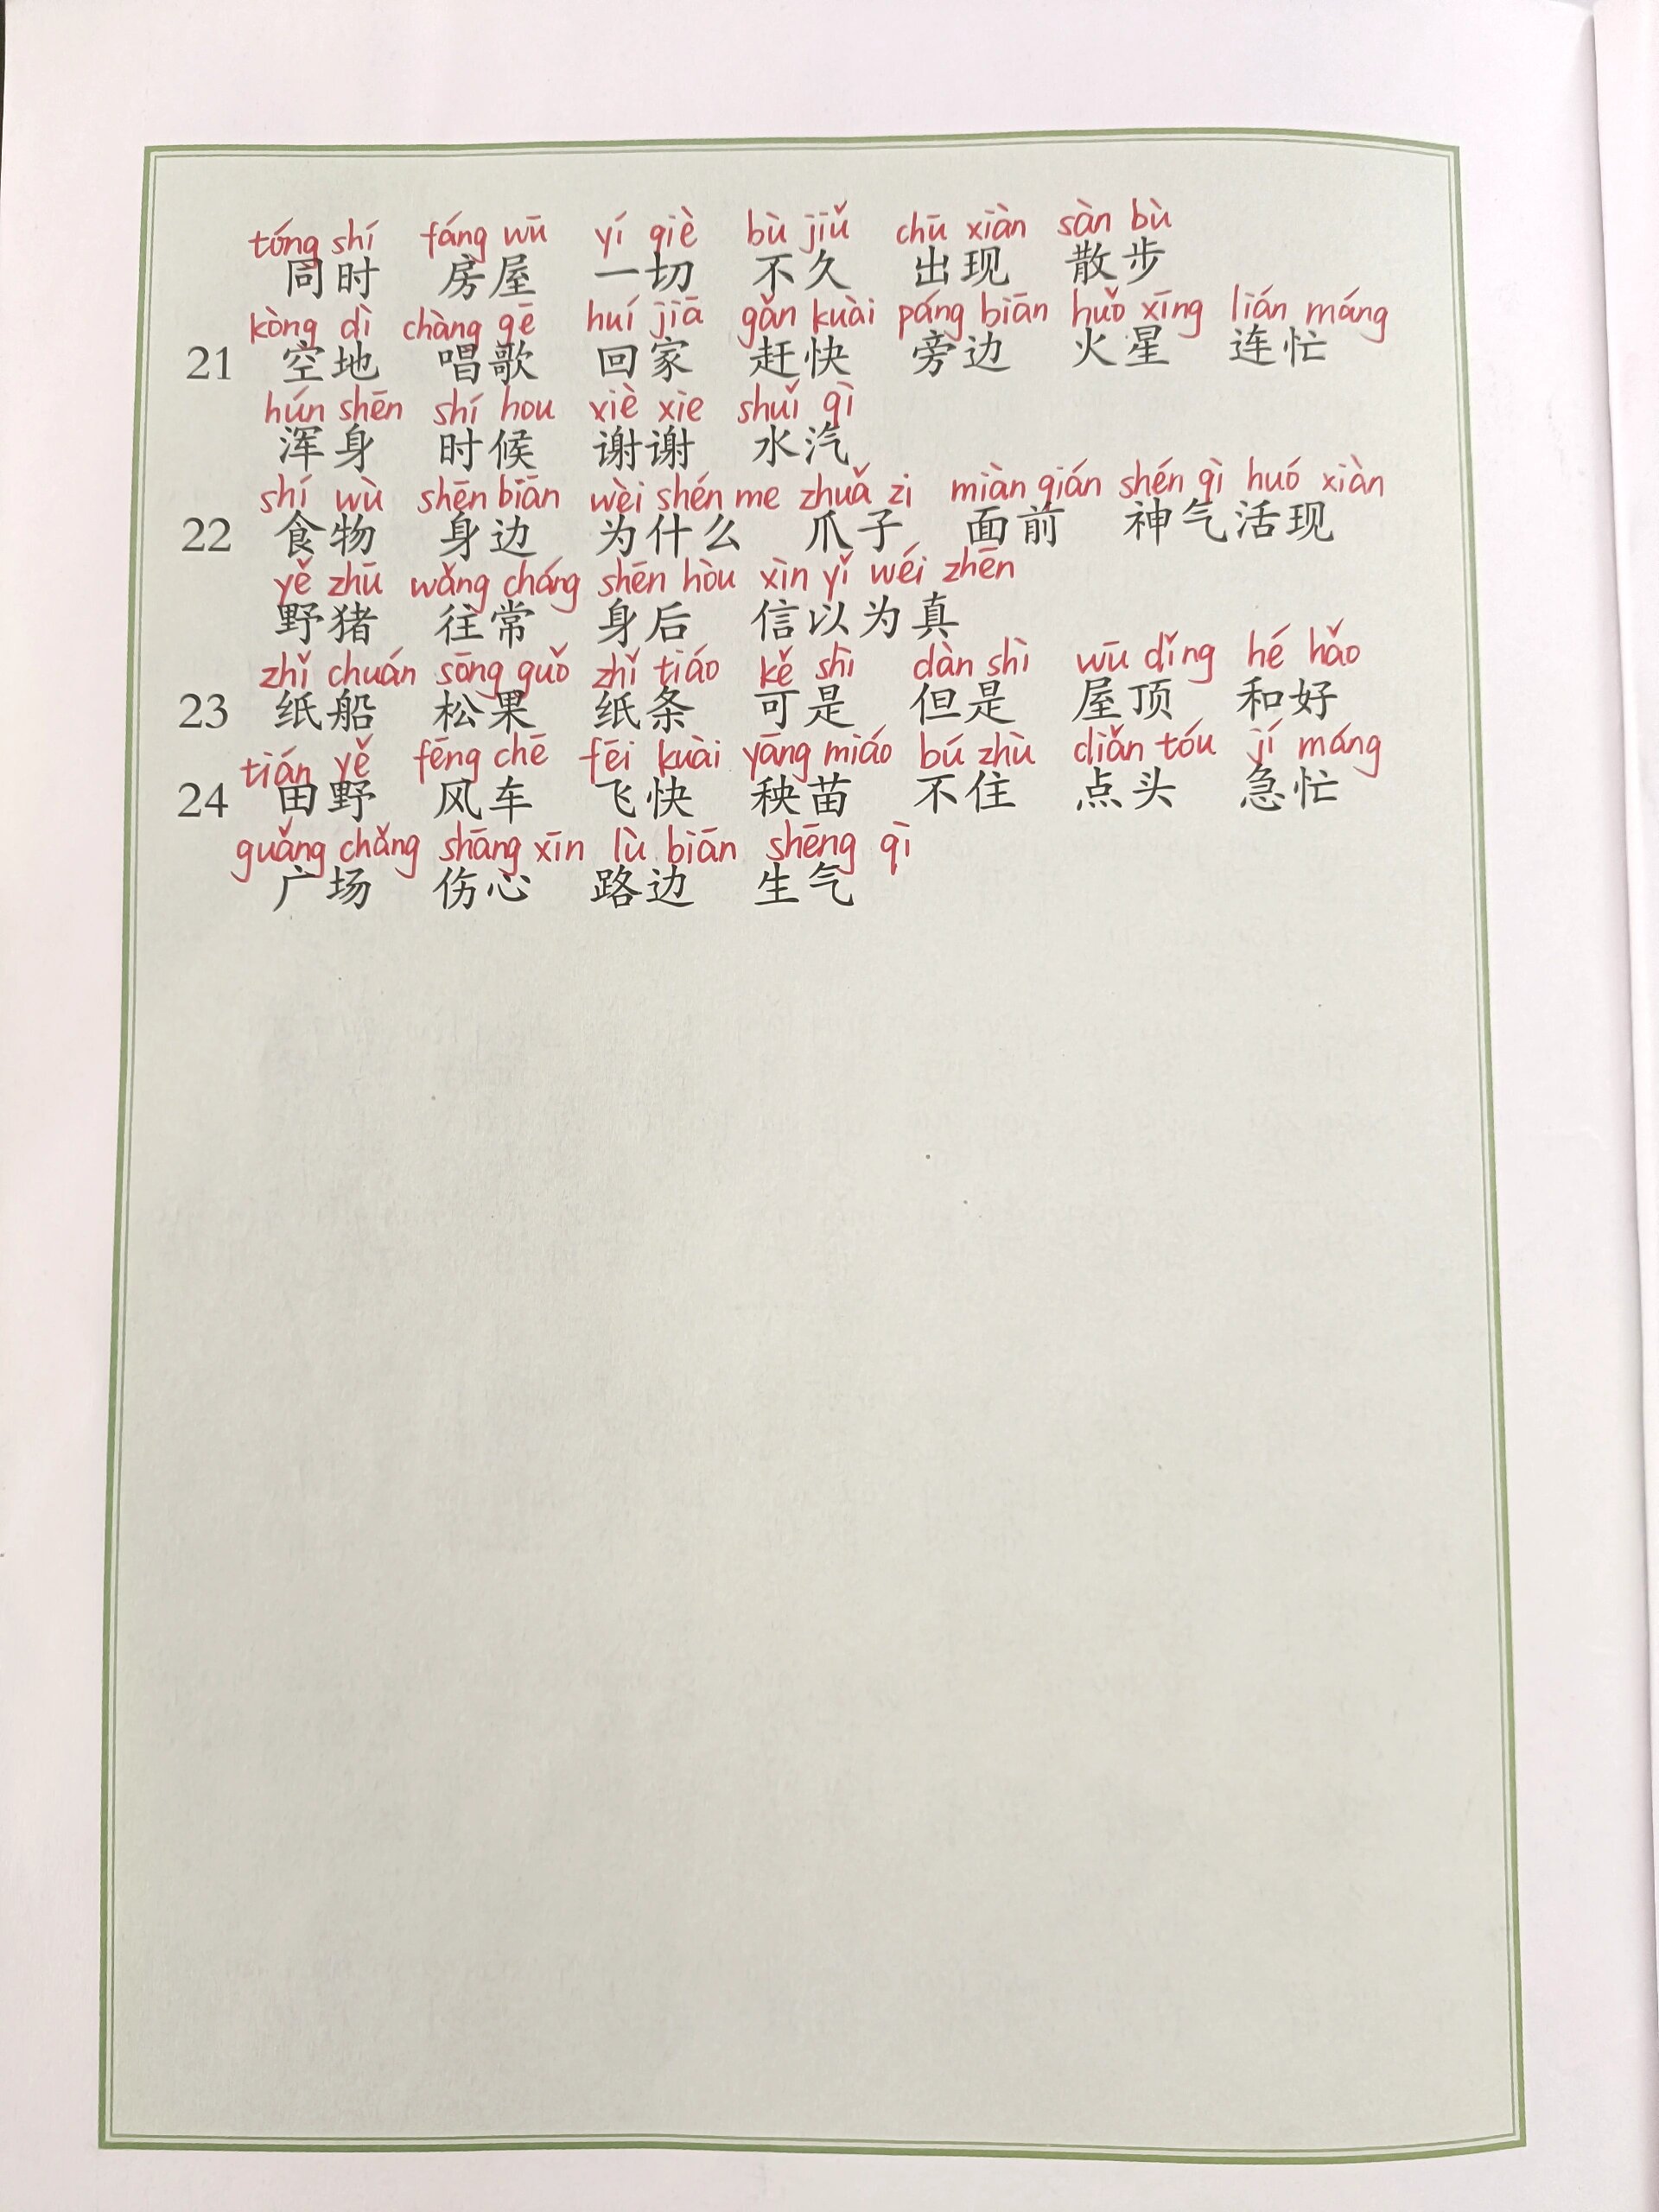 tóng shí fáng wū yí qiè bù jiǔ chū xiàn sàn bù
同时 房屋 一切 不久 出现 散步
kòng dì chàng gē huí jiā gǎn kuài páng biān huǒ xīng lián máng
21 空地 唱歌 回家 赶快 旁边 火星 连忙
hún shēn shí hou xiè xie shuǐ qì
浑身 时候 谢谢 水汽
shí wù shēn biān wèi shén me zhuǎ zi miàn qián shén qì huó xiàn
22 食物 身边 为什么 爪子 面前 神气活现
yě zhū wǎng cháng shēn hòu xìn yǐ wéi zhēn
野猪 往常 身后 信以为真
zhǐ chuán sōng guǒ zhǐ tiáo kě shì dàn shì wū dǐng hé hǎo
23 纸船 松果 纸条 可是 但是 屋顶 和好
tián yě fēng chē fēi kuài yāng miáo bú zhù diǎn tóu jí máng
24 田野 风车 飞快 秧苗 不住 点头 急忙
guǎng chǎng shāng xīn lù biān shēng qì
广场 伤心 路边 生气